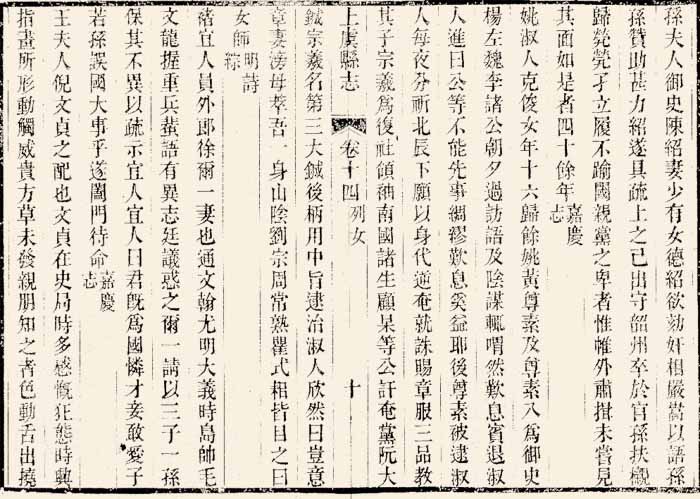 孫夫人御史陳紹妻少有女德紹欲劾奸相嚴嵩以語孫
孫贊助甚力紹遂具疏上之已出守韶州卒於官孫扶櫬
歸煢煢孑立履不踰閾親黨之卑者惟帷外肅揖未嘗見
其面如是者四十餘年嘉慶志
姚淑人克俊女年十六歸餘姚黃尊素及尊素入爲御史
楊左魏李諸公朝夕過訪語及陰謀輒喟然歎息賓退淑
人進曰公等不能先事綢繆歎息奚益耶後尊素被逮淑
人每夜分祈北辰下願以身代逆奄就誅賜章服三品教
其子宗羲爲復社領袖南國諸生顧杲等公訐奄黨阮大
上虞縣志 卷十四 列女 十
鋮宗羲名第三大鋮後柄用中旨逮治淑人欣然曰豈意
章妻滂母萃吾一身山陰劉宗周常熟瞿式耜皆目之曰
女師明詩綜
宜人員外郎徐爾一妻也通文翰尤明大義時島帥毛
文龍握重兵蜚語有異志廷議惑之爾一請以三子一孫
保其不異以疏示宜人宜人曰君既爲國憐才妾敢愛子
若孫誤國大事乎遂闔門待命嘉慶志
王夫人倪文貞之配也文貞在史局時多感慨狂態時
指畫所形動觸威貴方草未發親朋知之者色動舌出撓